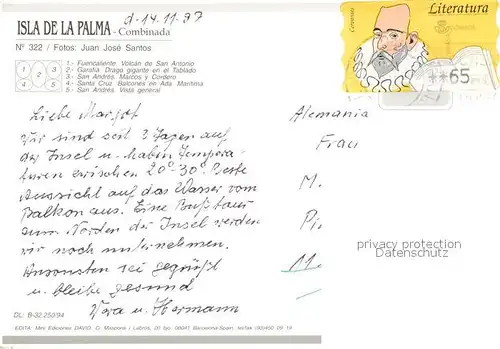 ISLA DE LA PALMA - Combinada
d. 14.11.97
Nº 322 / Fotos: Juan José Santos
1.- Fuencaliente. Volcán de San Antonio
2.- Garafía. Drago gigante en el Tablado
3.- San Andrés. Marcos y Cordero
4.- Santa Cruz. Balcones en Ada. Marítima
5.- San Andrés. Vista general
1 2 3 4 5
Cervantes
Literatura
**65
Liebe Margot
Wir sind seit 3 Tagen auf
der Insel u. haben Tempera-
turen zwischen 20°-30°. Beste
Aussicht auf das Wasser vom
Balkon aus. Eine Bustour
zum Norden der Insel werden
wir noch unternehmen.
Ansonsten sei gegrüßt
u. bleibe gesund
Vera u. Hermann
Alemania
Frau
M.
Pi
11
privacy protection
Datenschutz
DL: B-32.250/94
EDITA: Mini Ediciones DAVID C/. Maspons i Labrós, 20 bjos. 08041 Barcelona-Spain. tel/fax: (93)450 09 19